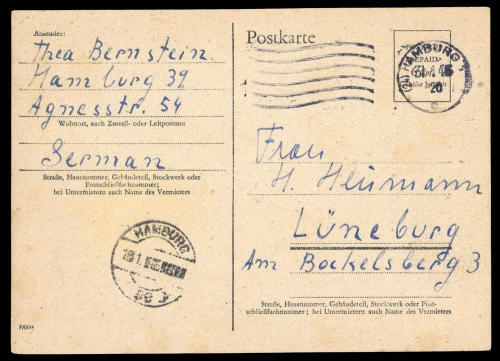 Absender:
Thea Bernstein
Hamburg 39
Agnesstr. 54
Wohnort, auch Zustell- oder Leitpostamt
German
Straße, Hausnummer, Gebäudeteil, Stockwerk oder
Postschließfachnummer;
bei Untermietern auch Name des Vermieters
HAMBURG
Postkarte
(24) HAMBURG
20
Frau
H. Heimann
Lüneburg
Am Bockelsberg 3
Straße, Hausnummer, Gebäudeteil, Stockwerk oder Post-
schließfachnummer; bei Untermietern auch Name des Vermieters